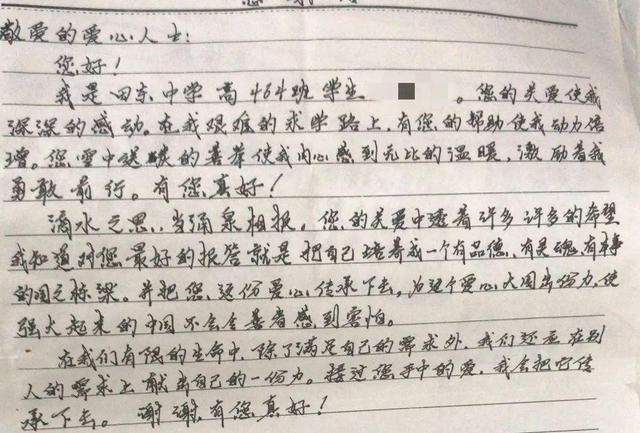 敬爱的爱心人士:
您好!
我是田东中学高464班学生 。您的关爱使我
深深的感动。在我艰难的求学路上,有您的帮助使我动力倍
增。您雪中送碳的善举使我内心感到无比的温暖,激励着我
勇敢前行。有您真好!
滴水之恩,当涌泉相报。您的关爱中透着许多许多的希望
我知道对您最好的报答就是把自己培养成一个有品德、有灵魂、有本事
的国之栋梁。并把您这份爱心传承下去,为这个爱心大国出份力,使
强大起来的中国不会令善者感到害怕。
在我们有限的生命中,除了满足自己的需求外,我们还应在别
人的需求上献出自己的一份力。接过您手中的爱,我会把它传
承下去。谢谢,有您真好!